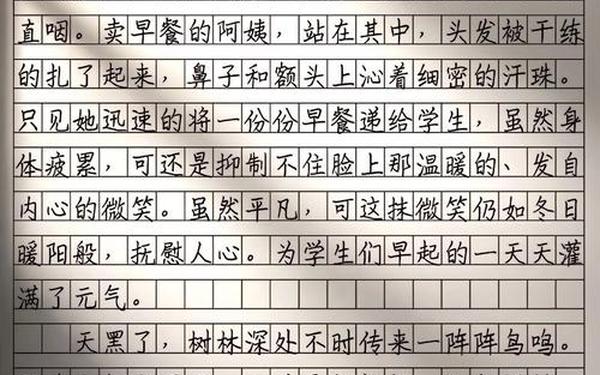 直咽。卖早餐的阿姨，站在其中，头发被干练
的扎了起来，鼻子和额头上沁着细密的汗珠。
只见她迅速的将一份份早餐递给学生，虽然身
体疲累，可还是抑制不住脸上那温暖的、发自
内心的微笑。虽然平凡，可这抹微笑仍如冬日
暖阳般，抚慰人心。为学生们早起的一天天灌
满了元气。
天黑了，树林深处不时传来一阵阵鸟鸣。